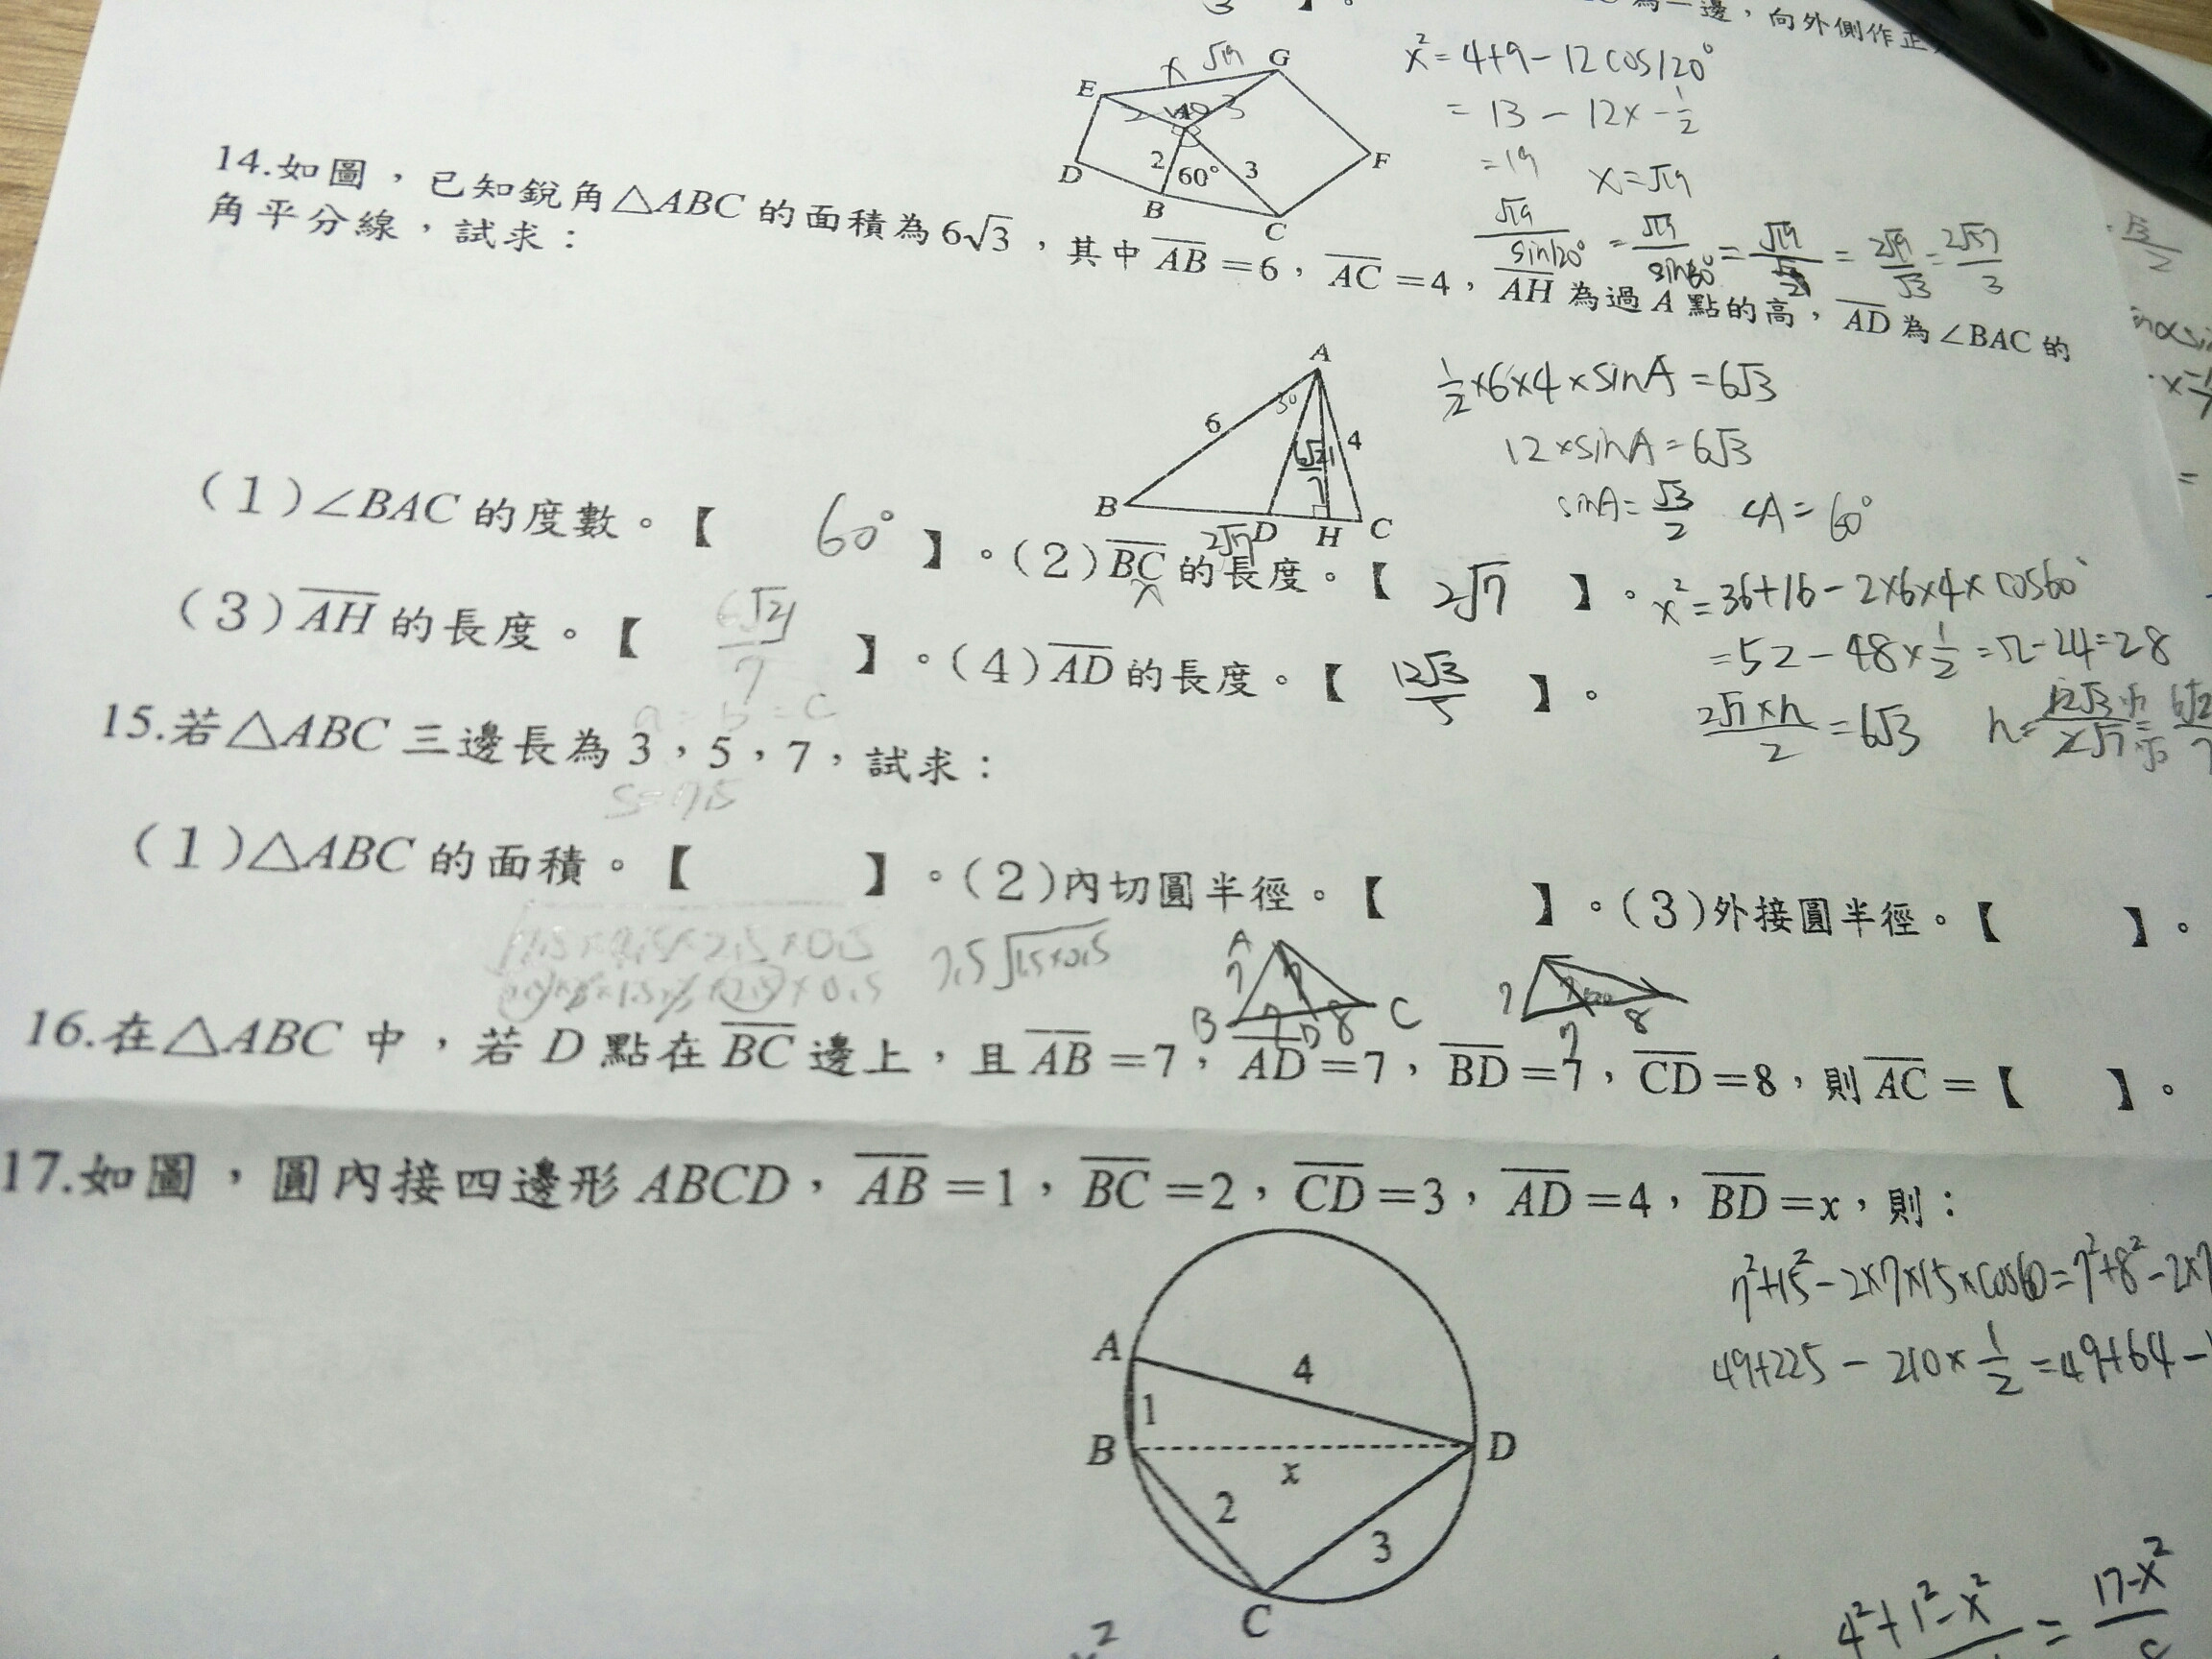 為一邊，向外側作正
3 】。
E
x √19
G
2
3
D
2
60°
3
F
B
C
x²=4+9-12cos120°
=13-12x-1/2
=19
x=√19
√19/sin120°=√19/sin60°=√19/(√3/2)=2√19/√3=2√57/3
14.如圖，已知銳角△ABC 的面積為6√3，其中AB=6，AC=4，AH為過A點的高，AD為∠BAC的
角平分線，試求：
A
6
30
4
6√21/7
B
D
H
C
2√7
1/2×6×4×sinA=6√3
12×sinA=6√3
sinA=√3/2 ∠A=60°
(1)∠BAC 的度數。【 60° 】。(2)BC的長度。【 2√7 】。
x
x²=36+16-2×6×4×cos60°
=52-48×1/2=52-24=28
(3)AH的長度。【 6√21/7 】。(4)AD的長度。【 12√3/5 】。
2√7×h/2=6√3
a = b = c
15.若△ABC 三邊長為3，5，7，試求：
S=7.5
(1)△ABC 的面積。【 】。(2)內切圓半徑。【 】。(3)外接圓半徑。【 】。
7.5√1.5×0.5
A
7
7
B
7
D
8
C
7
7
120
7
8
16.在△ABC 中，若D點在BC邊上，且AB=7，AD=7，BD=7，CD=8，則AC=【 】。
17.如圖，圓內接四邊形ABCD，AB=1，BC=2，CD=3，AD=4，BD=x，則：
7²+15²-2×7×15×cos60=7²+8²-2×7
49+225-210×1/2=49+64-
A
4
1
B
x
D
2
3
C
4²+1²-x²
=
17-x²